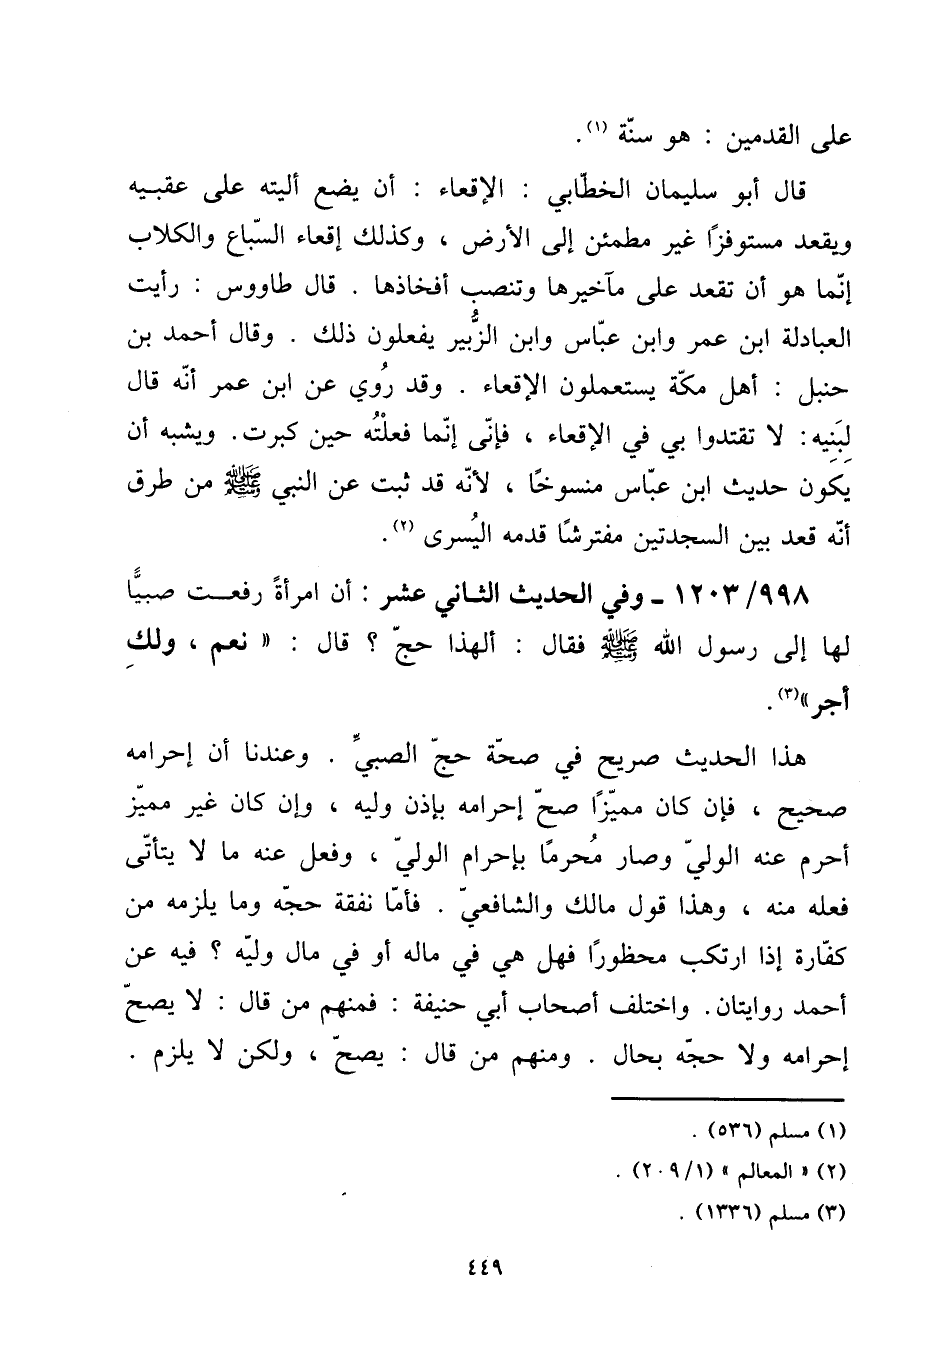 على القدمين : هو سنّة (١).
قال أبو سليمان الخطّابي : الإقعاء : أن يضع أليته على عقبـيه
ويقعد مستوفزًا غير مطمئن إلى الأرض ، وكذلك إقعاء السّباع والكلاب
إنّما هو أن تقعد على مآخيرها وتنصب أفخاذها . قال طاووس : رأيت
العبادلة ابن عمر وابن عبّاس وابن الزُّبير يفعلون ذلك . وقال أحمد بن
حنبل : أهل مكّة يستعملون الإقعاء . وقد رُوي عن ابن عمر أنّه قال
لبَنِيه: لا تقتدوا بي في الإقعاء ، فإنّى إنّما فعلْتُه حين كبرت. ويشبه أن
يكون حديث ابن عبّاس منسوخًا ، لأنّه قد ثبت عن النبي ﷺ من طرق
أنّه قعد بين السجدتين مفترشًا قدمه اليُسرى (٢).
٩٩٨/ ١٢٠٣ ـ وفي الحديث الثـاني عشر : أن امرأةً رفعـت صبيًّا
لها إلى رسول الله ﷺ فقال : ألهذا حجّ ؟ قال : « نعم ، ولكِ
أجر»(٣).
هذا الحديث صريح في صحّة حجّ الصبيّ . وعندنا أن إحرامه
صحيح ، فإن كان مميّزًا صحّ إحرامه بإذن وليه ، وإن كان غير مميّز
أحرم عنه الوليّ وصار مُحرمًا بإحرام الوليّ ، وفعل عنه ما لا يتأتّى
فعله منه ، وهذا قول مالك والشافعيّ . فأمّا نفقة حجّه وما يلزمه من
كفّارة إذا ارتكب محظورًا فهل هي في ماله أو في مال وليّه ؟ فيه عن
أحمد روايتان. واختلف أصحاب أبي حنيفة : فمنهم من قال : لا يصحّ
إحرامه ولا حجّه بحال . ومنهم من قال : يصحّ ، ولكن لا يلزم .
(١) مسلم (٥٣٦) .
(٢) « المعالم » (١/ ٢٠٩) .
(٣) مسلم (١٣٣٦) .
٤٤٩